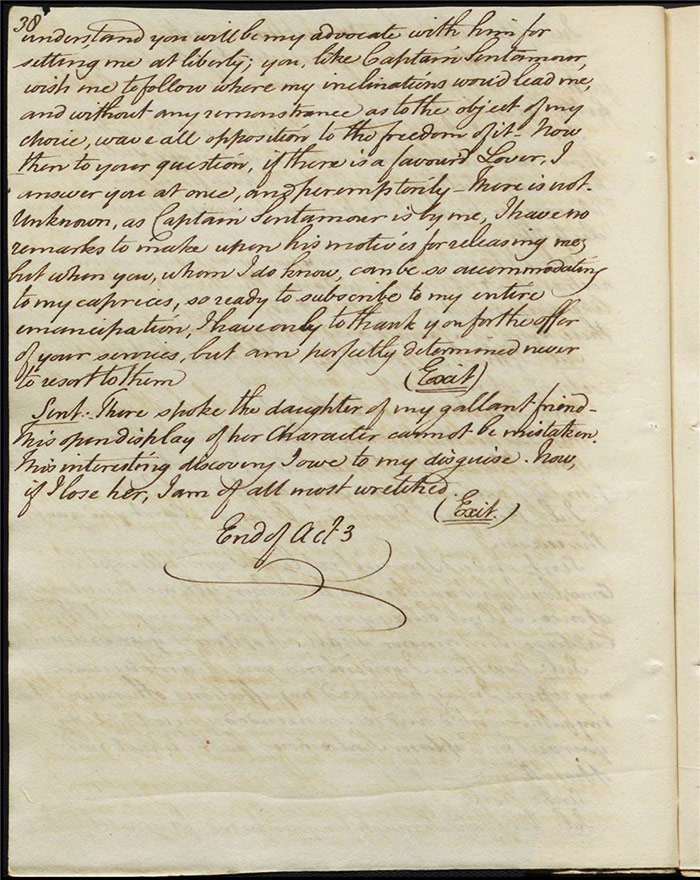 38
understand you will be my advocate with him for
setting me at liberty; you, like Captain Sentamour,
wish me to follow where my inclinations would lead me,
and without any remonstrance as to the object of my
choice, wave all opposition to the freedom of it - Now
then to your question, if there is a favour'd Lover, I
answer you at once, and peremptorily - There is not.
Unknown, as Captain Sentamour is by me, I have no
remarks to make upon his motives for releasing me;
but when you, whom I do know, can be so accommodating
to my caprices, so ready to subscribe to my entire
emancipation, I have only to thank you for the offer
of your services, but am perfectly determined never
to resort to them (Exit)
Sent: There spoke the daughter of my gallant friend -
This open display of her Character cannot be mistaken.
This interesting discovery I owe to my disguise. Now,
if I lose her, I am of all most wretched.
(Exit.)
End of Act 3